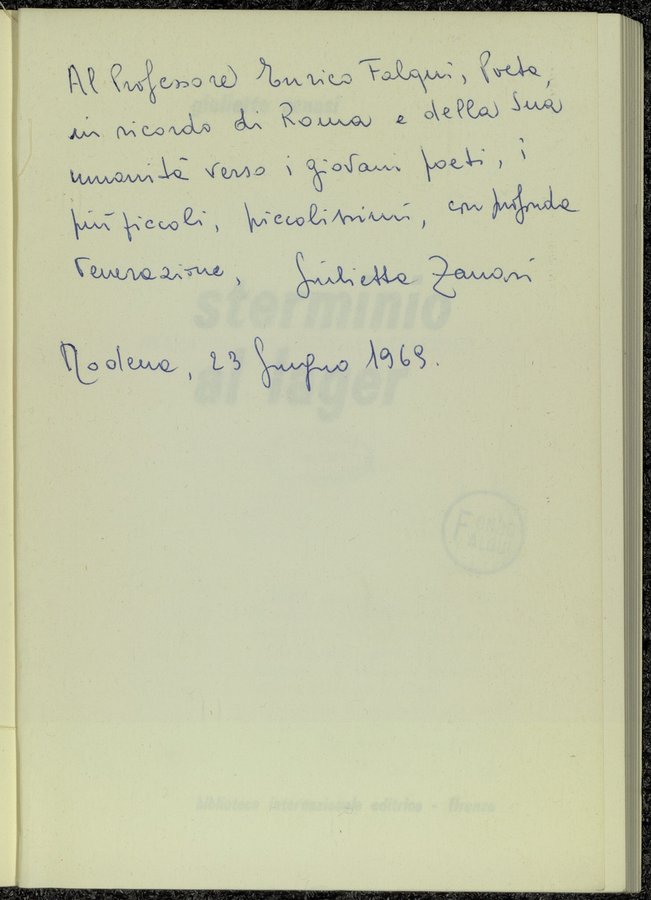 Al Professore Enrico Falqui, Poeta,
in ricordo di Roma e della Sua
umanità verso i giovani poeti, i
più piccoli, piccolissimi, con profonda
venerazione, Giulietta Zanasi
Modena, 23 Giugno 1969.
sterminio
al lager
biblioteca internazionale editrice - firenze